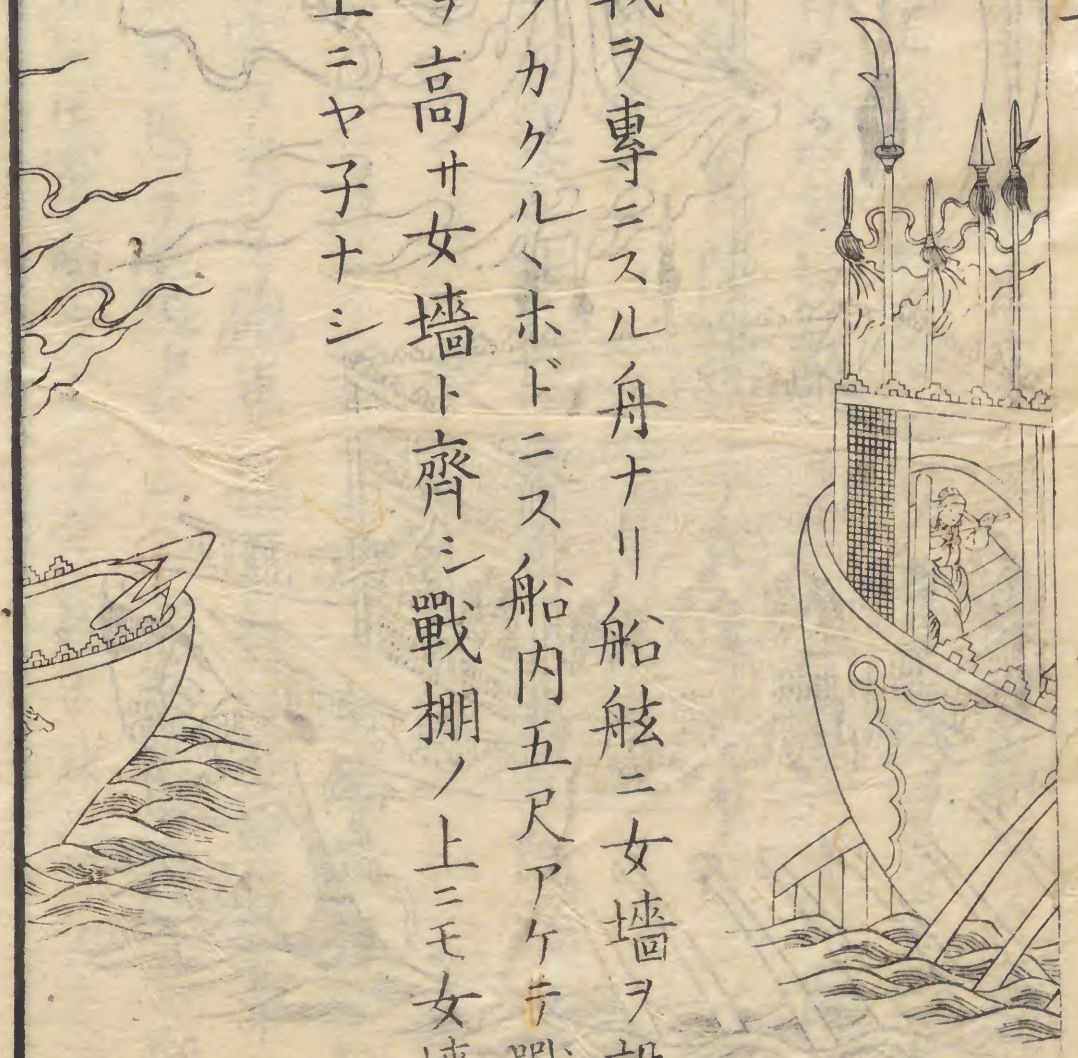 ヲ專ニスル舟ナリ船舷ニ女墻ヲ
カクルヽホドニス船内五尺アケテ
高サ女墻ト齊シ戰棚ノ上ニモ女
上ニヤ子ナシ